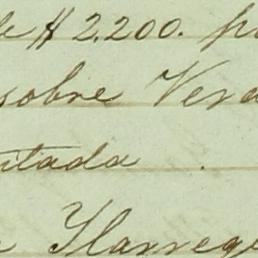 de $ 2.200. p
sobre Vera
ntada .
Ilarreg